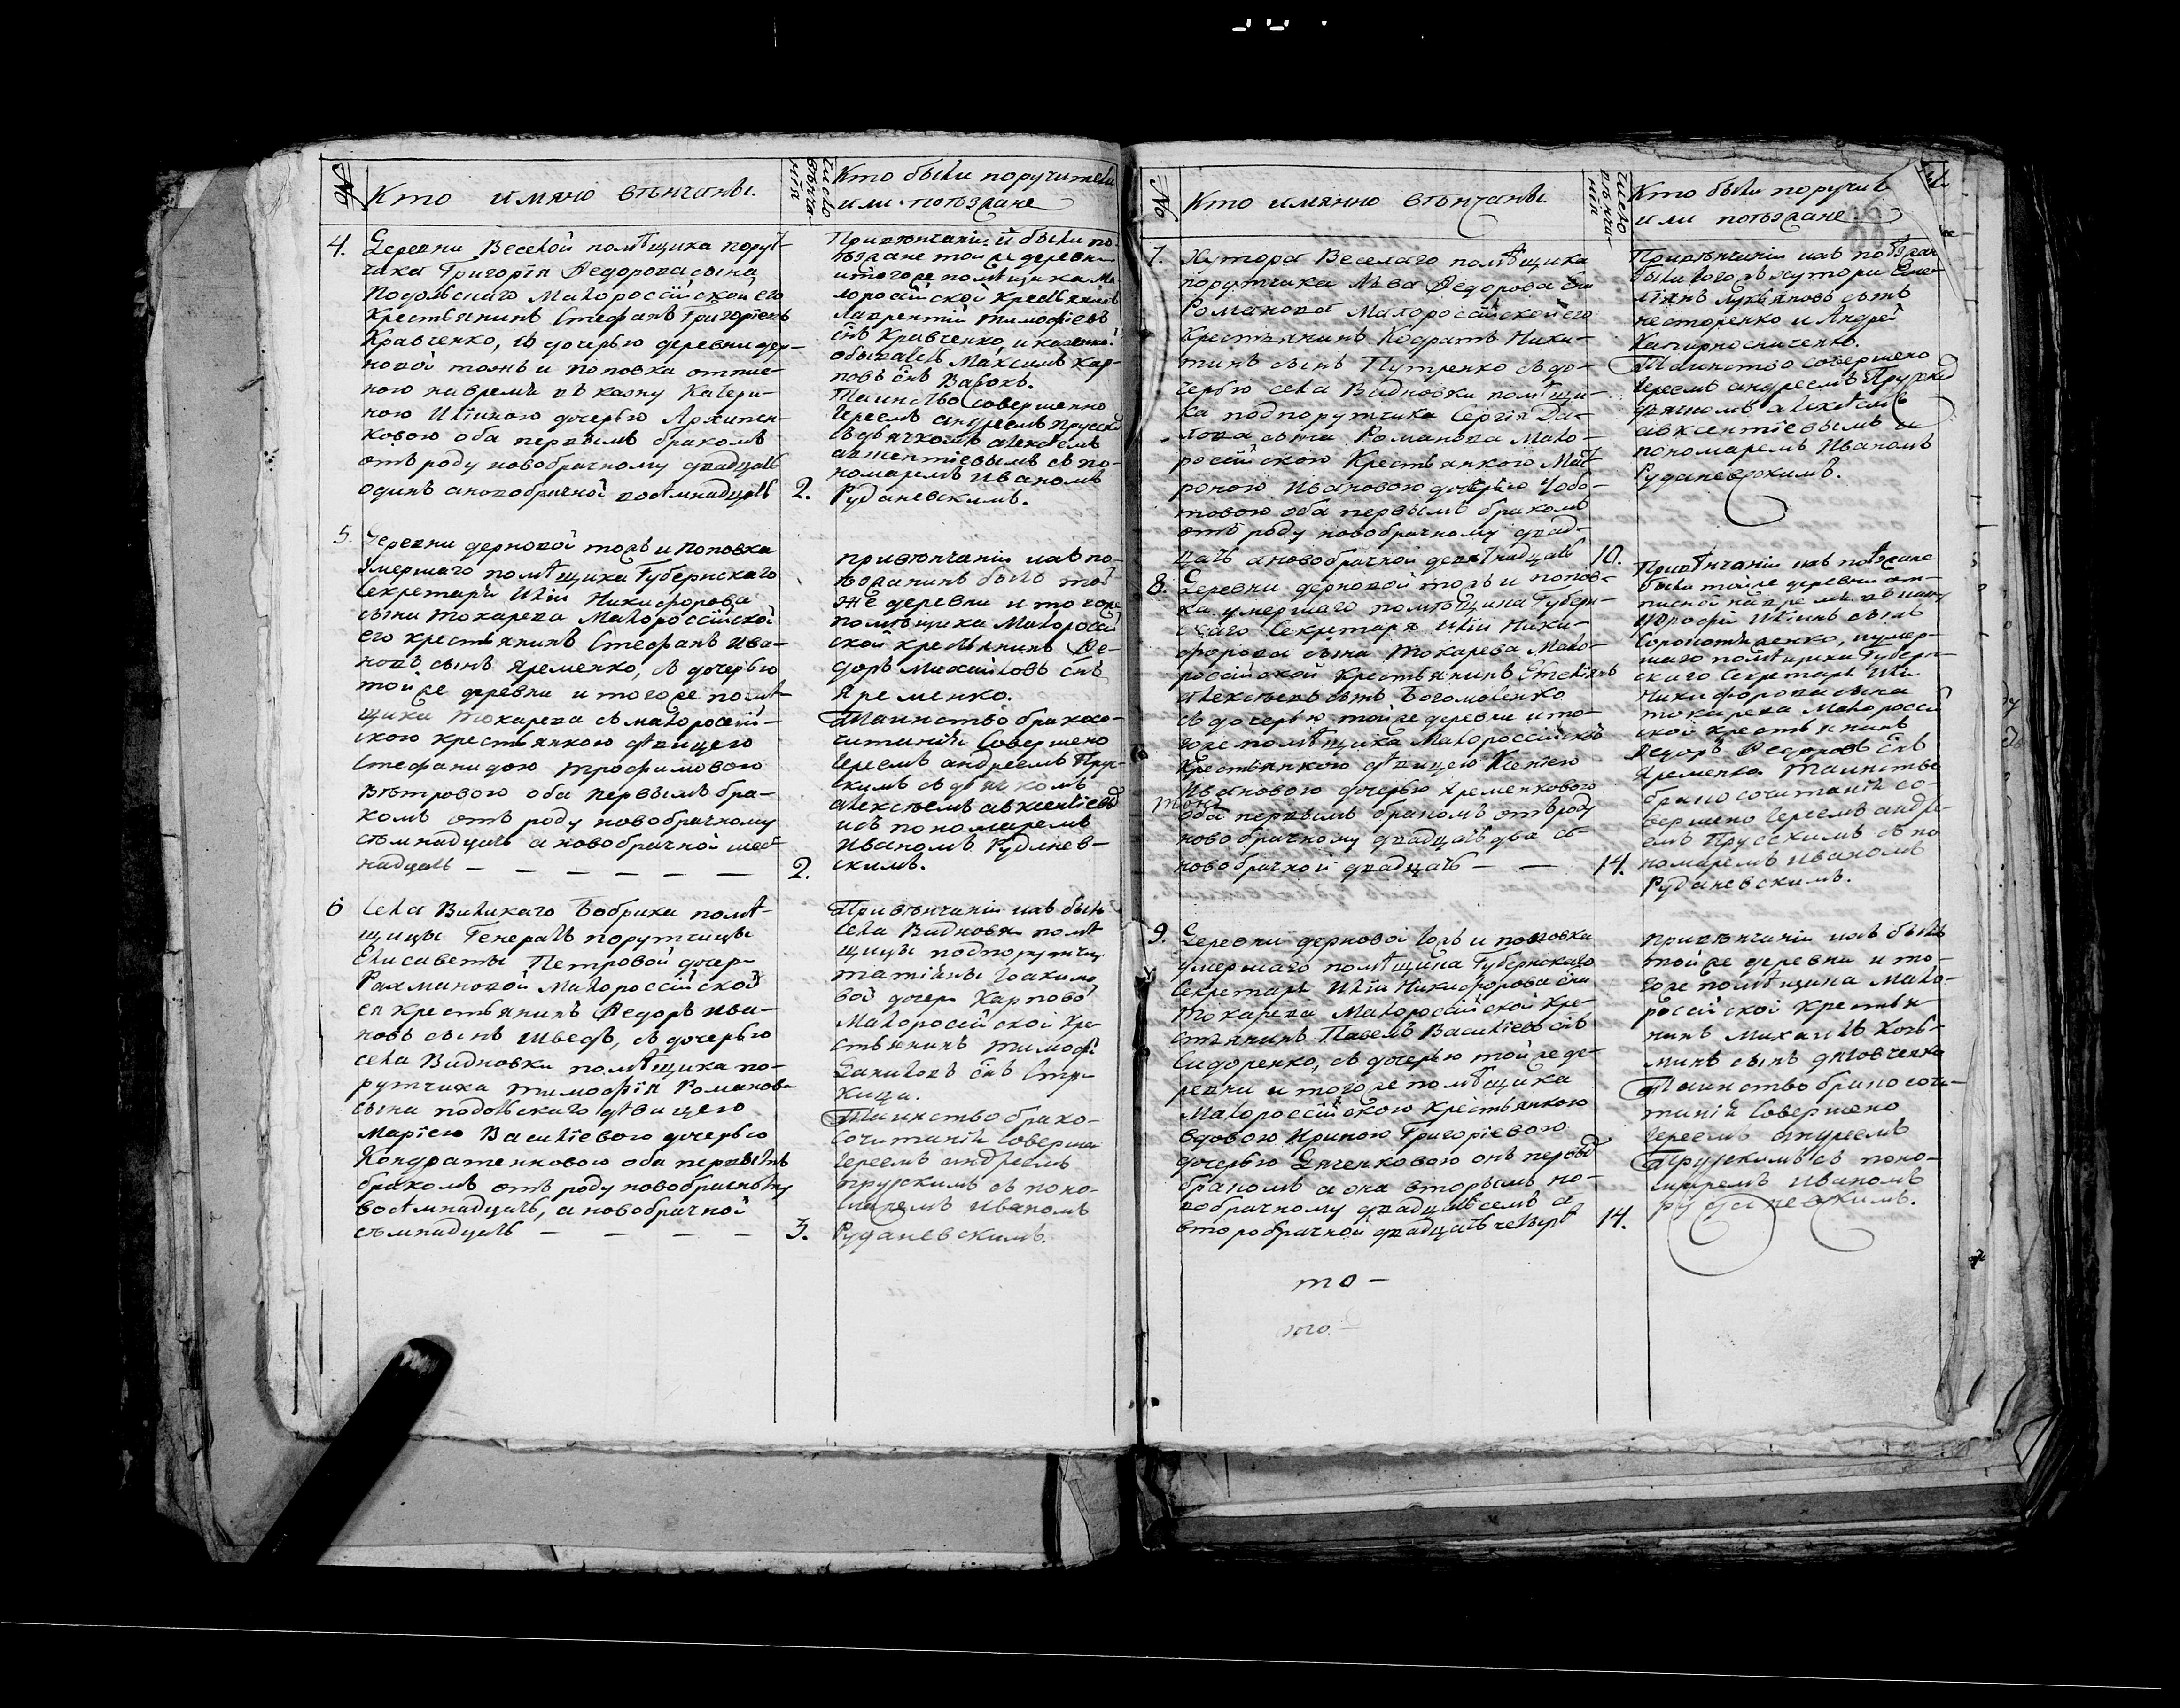 №
Кто имяно вѣнчаны.
Число венчания
Кто были поручители
или поѣзжане
4. Деревни Веселой помѣщика порут-
чика Григорія Ѳедорова сына
Подольскаго Малороссійской его
Крестьянинъ Стефанъ Григоріевъ
Кравченко, съ дочерью деревни дер-
новой тожъ и поповка отпис-
ною на время въ казну Катери-
ною Иліиною дочерью
ковою оба первымъ бракомъ
отъ роду новобрачному двадцать
одинъ а новобрачной восѣмнадцать
2.
При вѣнчаніи были по-
ѣзжане той же деревни
и того же помѣщика Ма
лоросійской крестьянинъ
Лаврентій Тимофіевъ
снъ Кравченко, и казенной
обыватель Максимъ Кар-
повъ снъ
Таинство совершено
Іереемъ андреемъ Прускимъ
съ дьячкомъ алексѣемъ
авксентіевымъ съ по-
номаремъ Иваномъ
Руданевскимъ.
5. Деревни дерновой тожъ и поповка
умершаго помѣщика Губернскаго
Секретаря Иліи Никифорова
сына Токарева Малороссійской
его крестьянинъ Стефанъ Ива-
новъ сынъ Яременко, съ дочерью
той же деревни и того же помѣ-
щика Токарева съ малоросій-
скою крестьянкою дѣвицею
Стефанидою Трофимовою
Вѣтровою оба первымъ бра-
комъ отъ роду новобрачному
сѣмнадцать а новобрачной шест
надцать — — — — — —
2.
при вѣнчаніи ихъ по-
ѣзжанинъ былъ той
же деревни и того же
помѣщика Малоросій
ской крестьянинъ Ѳе-
доръ Михайловъ снъ
Яременко.
Таинство бракосо-
читанія Совершено
Іереемъ андреемъ Прус-
скимъ съ дьячкомъ
алексѣемъ авксентіевым
и съ пономаремъ
Иваномъ Руданев-
скимъ.
6 Села Виликаго Бобрика помѣ-
щицы Генералъ порутчицы
Елисаветы Петровой дочери
Рахмановой Малороссійской
ея крестьянинъ Ѳедоръ Ива-
новъ сынъ Шведъ, съ дочерью
села Видновки помѣщика по-
рутчика Тимофія Романова
сына подольскаго дѣвицею
Маріею Василіевою дочерью
Кондратенковою оба первымъ
бракомъ отъ роду новобрачному
восѣмнадцать, а новобрачной
сѣмнадцать — — — —
3.
При вѣнчаніи ихъ былъ
села Видновки помѣ
щицы подпорутчиц
татіаны Іоакимо
вой дочери Карповой
Малоросійской Кре
стьянинъ Тимофѣй
Даниловъ снъ

Таинство брако-
сочитанія соверше
Іереемъ андреемъ
прускимъ съ поно-
маремъ Иваномъ
Руданевскимъ.
№
Кто имянно вѣнчаны.
Число венчания
Кто были поручит
или поѣзжане
7. Хутора Веселаго помѣщика
порутчика Льва Ѳедорова сна
Романова Малороссійской его
Крестьянинъ Кодратъ Ники-
тинъ сынъ Путренко съ до-
черью села Видновки помѣщи-
ка подпорутчика Сергія
сына Романова Мало-
россійскою Крестьянкою Мат
роною Ивановою дочерью Чобо-
товою оба первымъ бракомъ
отъ роду новобрачному двад-
цать а новобрачной девятнадцать
10.
При вѣнчаніи ихъ поѣзжан
были того жъ хутора Еме-
ліянъ Лукьяновъ сынъ
несторенко и Андрей
Капирносниченко.
Таинство совершено
Іереемъ андреемъ Прускимъ
дьячкомъ алексѣемъ
авксентіевымъ и
пономаремъ Иваномъ
Руданевскимъ.
8. Деревни дерновой тожъ и попов-
ка умершаго помѣщика Губерн-
скаго Секретаря Иліи Ники-
форова сына Токарева Мало-
россійской Крестьянинъ Емеліанъ
Алексѣевъ сынъ Богомоленко
съ дочерью той же деревни и то-
го же помѣщика Малороссійской
Крестьянкою дѣвицею Ксеніею
Ивановою дочерью Яременковою
оба первымъ бракомъ отъ роду
новобрачному двадцать два а
новобрачной двадцать — —
14.
При вѣнчаніи ихъ поѣзжане
были той же деревни от-
писной на время въ казну
Илиинъ сынъ
и умер-
шаго помѣщика Губерн-
скаго Секретаря Илии
Никифорова сына
токарева Малоросій
ской крестьянинъ
Ѳедоръ Ѳедоровъ снъ
Яременко Таинство
бракосочитанія со-
вершено Іереемъ андре-
емъ Прусскимъ съ по
номаремъ Иваномъ
Руданевскимъ.
9. Деревни дерновой тожъ и поповка
умершаго помѣщика Губернскаго
Секретаря Иліи Никифорова сна
Токарева Малороссійской Кре-
стьянинъ Павелъ Василіевъ снъ
Сидоренко, съ дочерью той же де-
ревни и того же помѣщика
Малороссійскою крестьянкою
вдовою Ириною Григоріевою
дочерью Дяченковою онъ первымъ
бракомъ а она вторымъ но-
вобрачному двадцать семъ а
второбрачной двадцать четыре
14.
то —
то —
при вѣнчаніи ихъ былъ
той же деревни и то-
го же помѣщика Мало-
російской Крестья-
нинъ Михаилъ Козь-
минъ сынъ
Таинство бракосочи-
танія Совершено
Іереемъ андреемъ
Прускимъ съ поно-
маремъ Иваномъ
руданевскимъ.